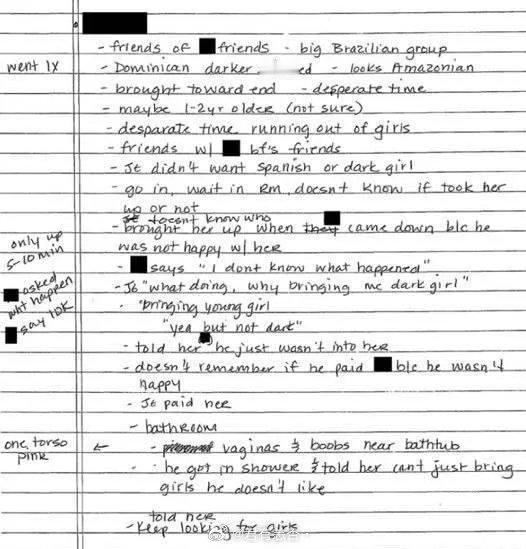 - friends of friends - big Brazilian group
went 1x
- Dominican darker, ed - looks Amazonian
- brought toward end - desperate time
- maybe 1-2yr older (not sure)
- desparate time running out of girls
- friends w/ bf's friends
- JE didn't want Spanish or dark girl
- go in, wait in Rm, doesn't know if took her
up or not
JE doesn't know who
- brought her up when they came down b/c he
was not happy w/ her
only up
5-10 min
- says "I dont know what happened"
asked
wht happen
say IDK
- JE "what doing, why bringing me dark girl"
- "bringing young girl
"yea but not dark"
- told her he just wasn't into her
- doesn't remember if he paid b/c he wasn't
happy
- JE paid her
- bathroom
one torso
pink
← - vaginas & boobs near bathtub
- he got in shower & told her cant just bring
girls he doesn't like
told her
- Keep looking for girls